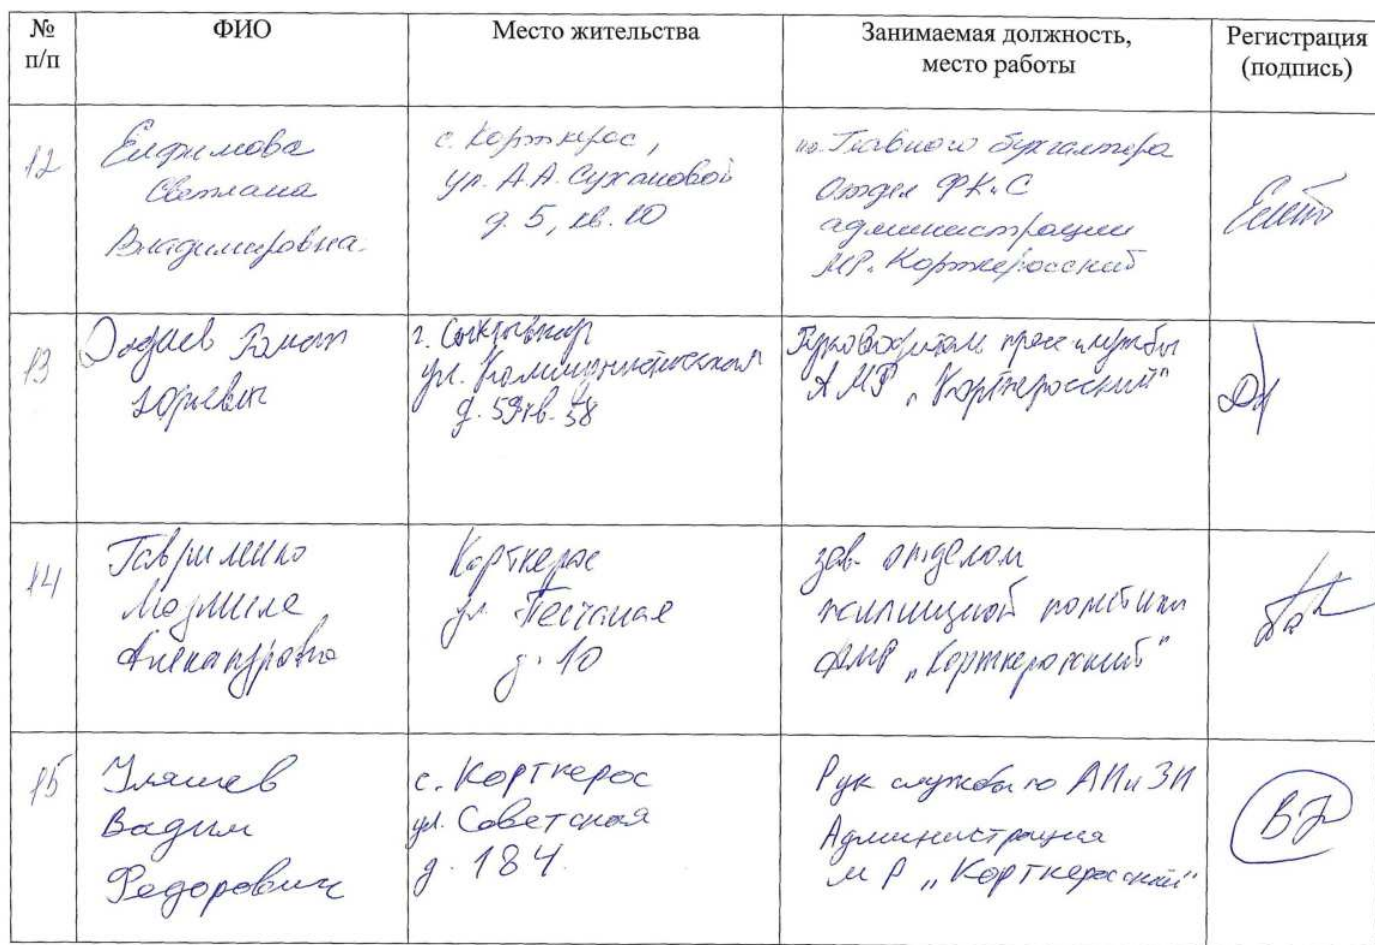 № п/п
ФИО
Место жительства
Занимаемая должность, место работы
Регистрация (подпись)
12
Елфимова
Светлана
Владимировна.
с. Корткерос,
ул. А.А. Сухановой
д. 5, кв. 10
ио. Главного бухгалтера
Отдел ФКиС
администрации
МР. Корткеросский
13
Роман
Юрьевич
г. Сыктывкар
ул. Коммунистическая
Руководитель пресс-службы
АМР „Корткеросский"
14
Гавриленко
Людмила
Александровна
Корткерос
ул. Песчаная
д. 10
зав. отделом
жилищной политики
АМР „Корткеросский"
15
Уляшев
Вадим
Федорович
с. Корткерос
ул. Советская
д. 184.
Рук службы по
Администрация
МР „Корткеросский"